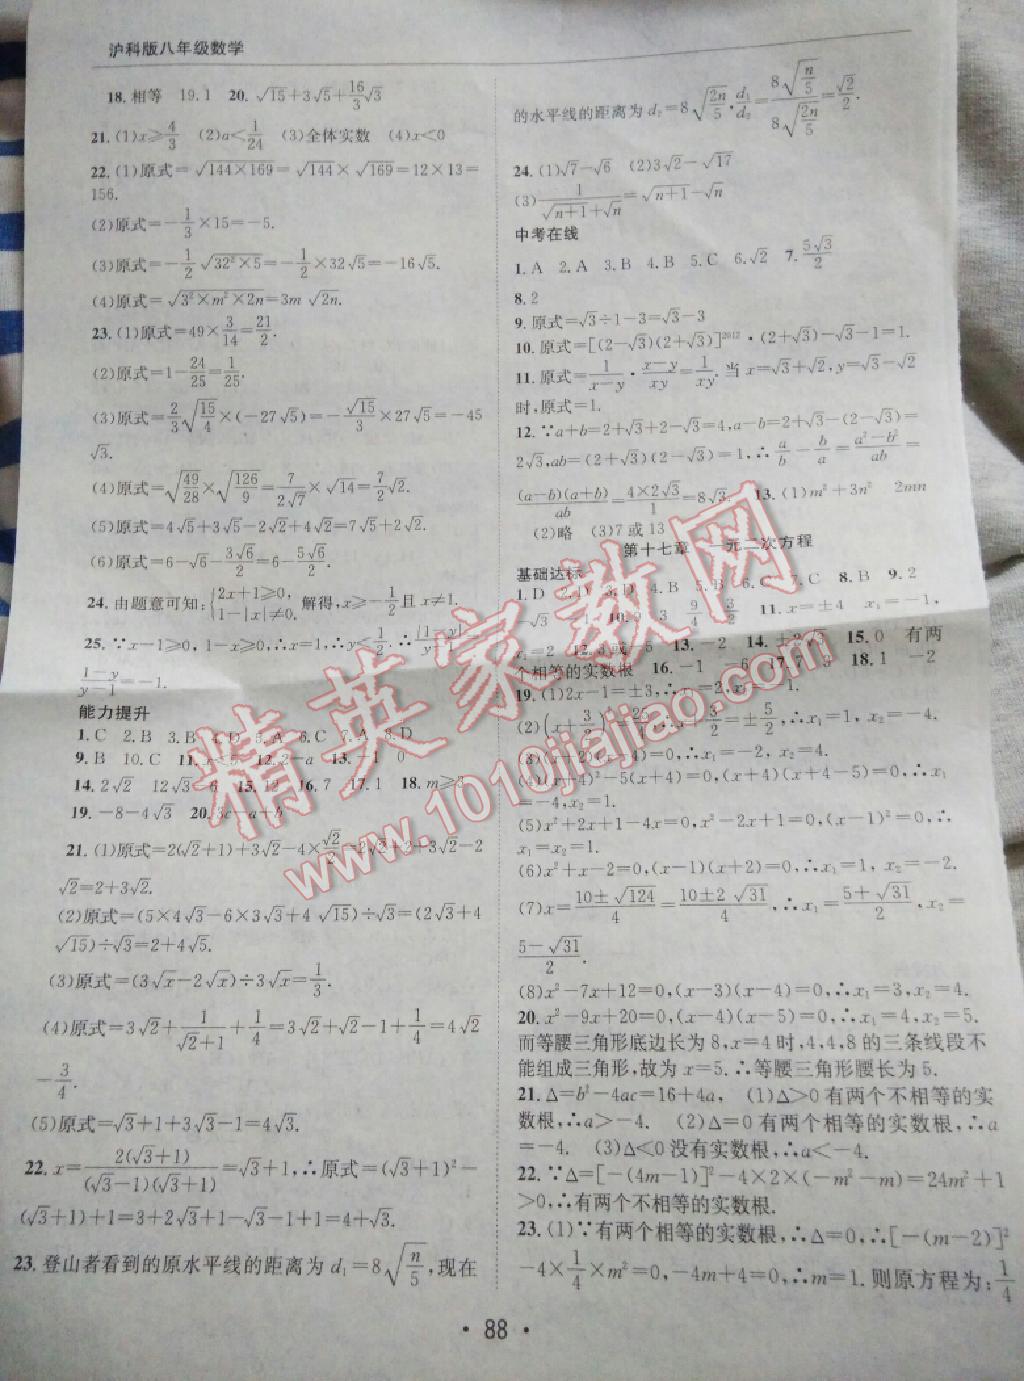 沪科版八年级数学
18.相等 19.1 20.√15+3√5+16/3√3
21.(1)x≥4/3 (2)a<1/24 (3)全体实数 (4)x<0
22.(1)原式=√(144×169)=√144×√169=12×13=
156.
(2)原式=-1/3×15=-5.
(3)原式=-1/2√(32²×5)=-1/2×32√5=-16√5.
(4)原式=√(3²×m²×2n)=3m√2n.
23.(1)原式=49×3/14=21/2.
(2)原式=1-24/25=1/25.
(3)原式=2/3√(15/4)×(-27√5)=-√15/3×27√5=-45
√3.
(4)原式=√(49/28)×√(126/9)=7/(2√7)×√14=7/2√2.
(5)原式=4√5+3√5-2√2+4√2=7√5+2√2.
(6)原式=6-√6-3√6/2=6-5√6/2.
24.由题意可知:{2x+1≥0, 1-|x|≠0. 解得,x≥-1/2且x≠1.
25.∵x-1≥0,1-x≥0,∴x=1,∴y<1/2.∴|1-y|/(y-1)=
(1-y)/(y-1)=-1.
能力提升
1.C 2.B 3.B 4.D 5.A 6.C 7.A 8.D
9.B 10.C 11.x<5 12.2-a 13.-1 0
14.2√2 12√3-6 15.12 16.7 17.1 18.m≥3
19.-8-4√3 20.3c-a+b
21.(1)原式=2(√2+1)+3√2-4×√2/2=2√2+2+3√2-2
√2=2+3√2.
(2)原式=(5×4√3-6×3√3+4√15)÷√3=(2√3+4
√15)÷√3=2+4√5.
(3)原式=(3√x-2√x)÷3√x=1/3.
(4)原式=3√2+1/(√2+1)+1/4=3√2+√2-1+1/4=4√2
-3/4.
(5)原式=√3+1+3√3-1=4√3.
22.x=2(√3+1)/((√3-1)(√3+1))=√3+1,∴原式=(√3+1)²-
(√3+1)+1=3+2√3+1-√3-1+1=4+√3.
23.登山者看到的原水平线的距离为d₁=8√(n/5),现在
的水平线的距离为d₂=8√(2n/5).d₁/d₂=8√(n/5)/8√(2n/5)=√2/2.
24.(1)√7-√6 (2)3√2-√17
(3)1/(√(n+1)+√n)=√(n+1)-√n
中考在线
1.A 2.A 3.B 4.B 5.C 6.√2 7.5√3/2
8.2
9.原式=√3÷1-3=√3-3
10.原式=[(2-√3)(2+√3)]²⁰¹²·(2+√3)-√3-1=1.
11.原式=1/(x-y)·(x-y)/xy=1/xy.当x=√3+√2,y=√3-√2
时,原式=1.
12.∵a+b=2+√3+2-√3=4,a-b=2+√3-(2-√3)=
2√3,ab=(2+√3)(2-√3)=1,∴a/b-b/a=(a²-b²)/ab=
(a-b)(a+b)/ab=4×2√3/1=8√3. 13.(1)m²+3n² 2mn
(2)略 (3)7或13
第十七章 一元二次方程
基础达标
1.D 2.D 3.D 4.B 5.B 6.C 7.C 8.B 9.2
-√3 1 10.9 3 9/4 3/2 11.x=±4 x₁=-1,
x₂=2 12.3或-5 13.-2 14.±2√3 15.0 有两
个相等的实数根 16.-1 -6 17.7 3 18.1 -2
19.(1)2x-1=±3,∴x₁=2,x₂=-1.
(2)(x+3/2)²=25/4,∴x+3/2=±5/2,∴x₁=1,x₂=-4.
(3)(x+2)(x-4)=0,∴x₁=-2,x₂=4.
(4)(x+4)²-5(x+4)=0,(x+4)(x+4-5)=0,∴x₁
=-4,x₂=1.
(5)x²+2x+1-4x=0,x²-2x+1=0,(x-1)²=0,∴
x₁=x₂=1.
(6)x²+x-2=0,(x-1)(x+2)=0,∴x₁=1,x₂=-2.
(7)x=(10±√124)/4=(10±2√31)/4,∴x₁=(5+√31)/2,x₂=
(5-√31)/2.
(8)x²-7x+12=0,(x-3)(x-4)=0,∴x₁=3,x₂=4.
20.x²-9x+20=0,(x-4)(x-5)=0,∴x₁=4,x₂=5.
而等腰三角形底边长为8,x=4时,4,4,8的三条线段不
能组成三角形,故为x=5.∴等腰三角形腰长为5.
21.Δ=b²-4ac=16+4a, (1)Δ>0有两个不相等的实
数根,∴a>-4. (2)Δ=0有两个相等的实数根,∴a
=-4. (3)Δ<0没有实数根,∴a<-4.
22.∵Δ=[-(4m-1)]²-4×2×(-m²-m)=24m²+1
>0,∴有两个不相等的实数根.
23.(1)∵有两个相等的实数根,∴Δ=0,∴[-(m-2)]²
-4×1/4×m²=0,-4m+4=0,∴m=1.则原方程为:1/4
·88·
精英家教网
www.1010jiajiao.com